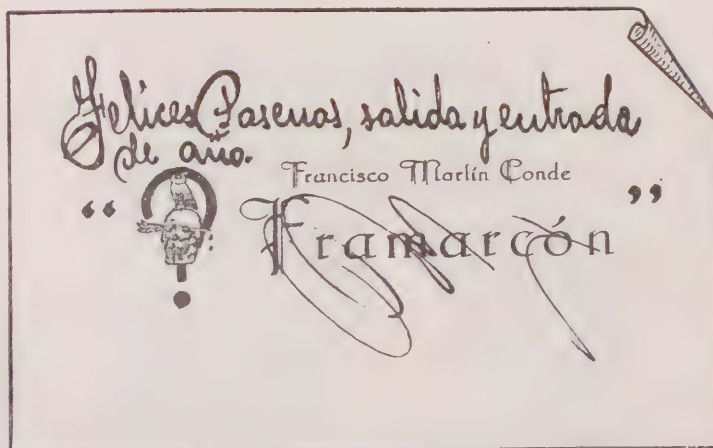 Felices Pascuas, salida y entrada
de año.
Francisco Martín Conde
“ Framarcón ”